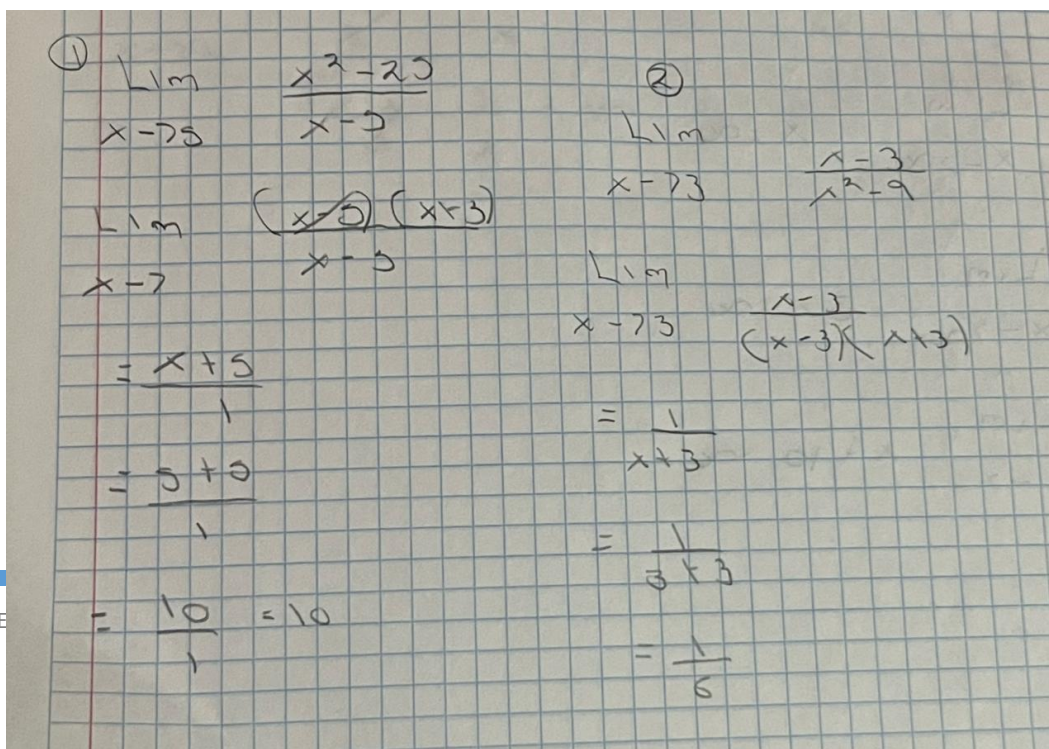 ①
Lim x²-25
x->5 x-5
Lim (x-5) (x+3)
x-> x-5
= x+5
1
= 5+5
1
= 10 = 10
1
②
Lim
x->3 x-3
x²-9
Lim
x->3 x-3
(x-3)(x+3)
= 1
x+3
= 1
3+3
= 1
6